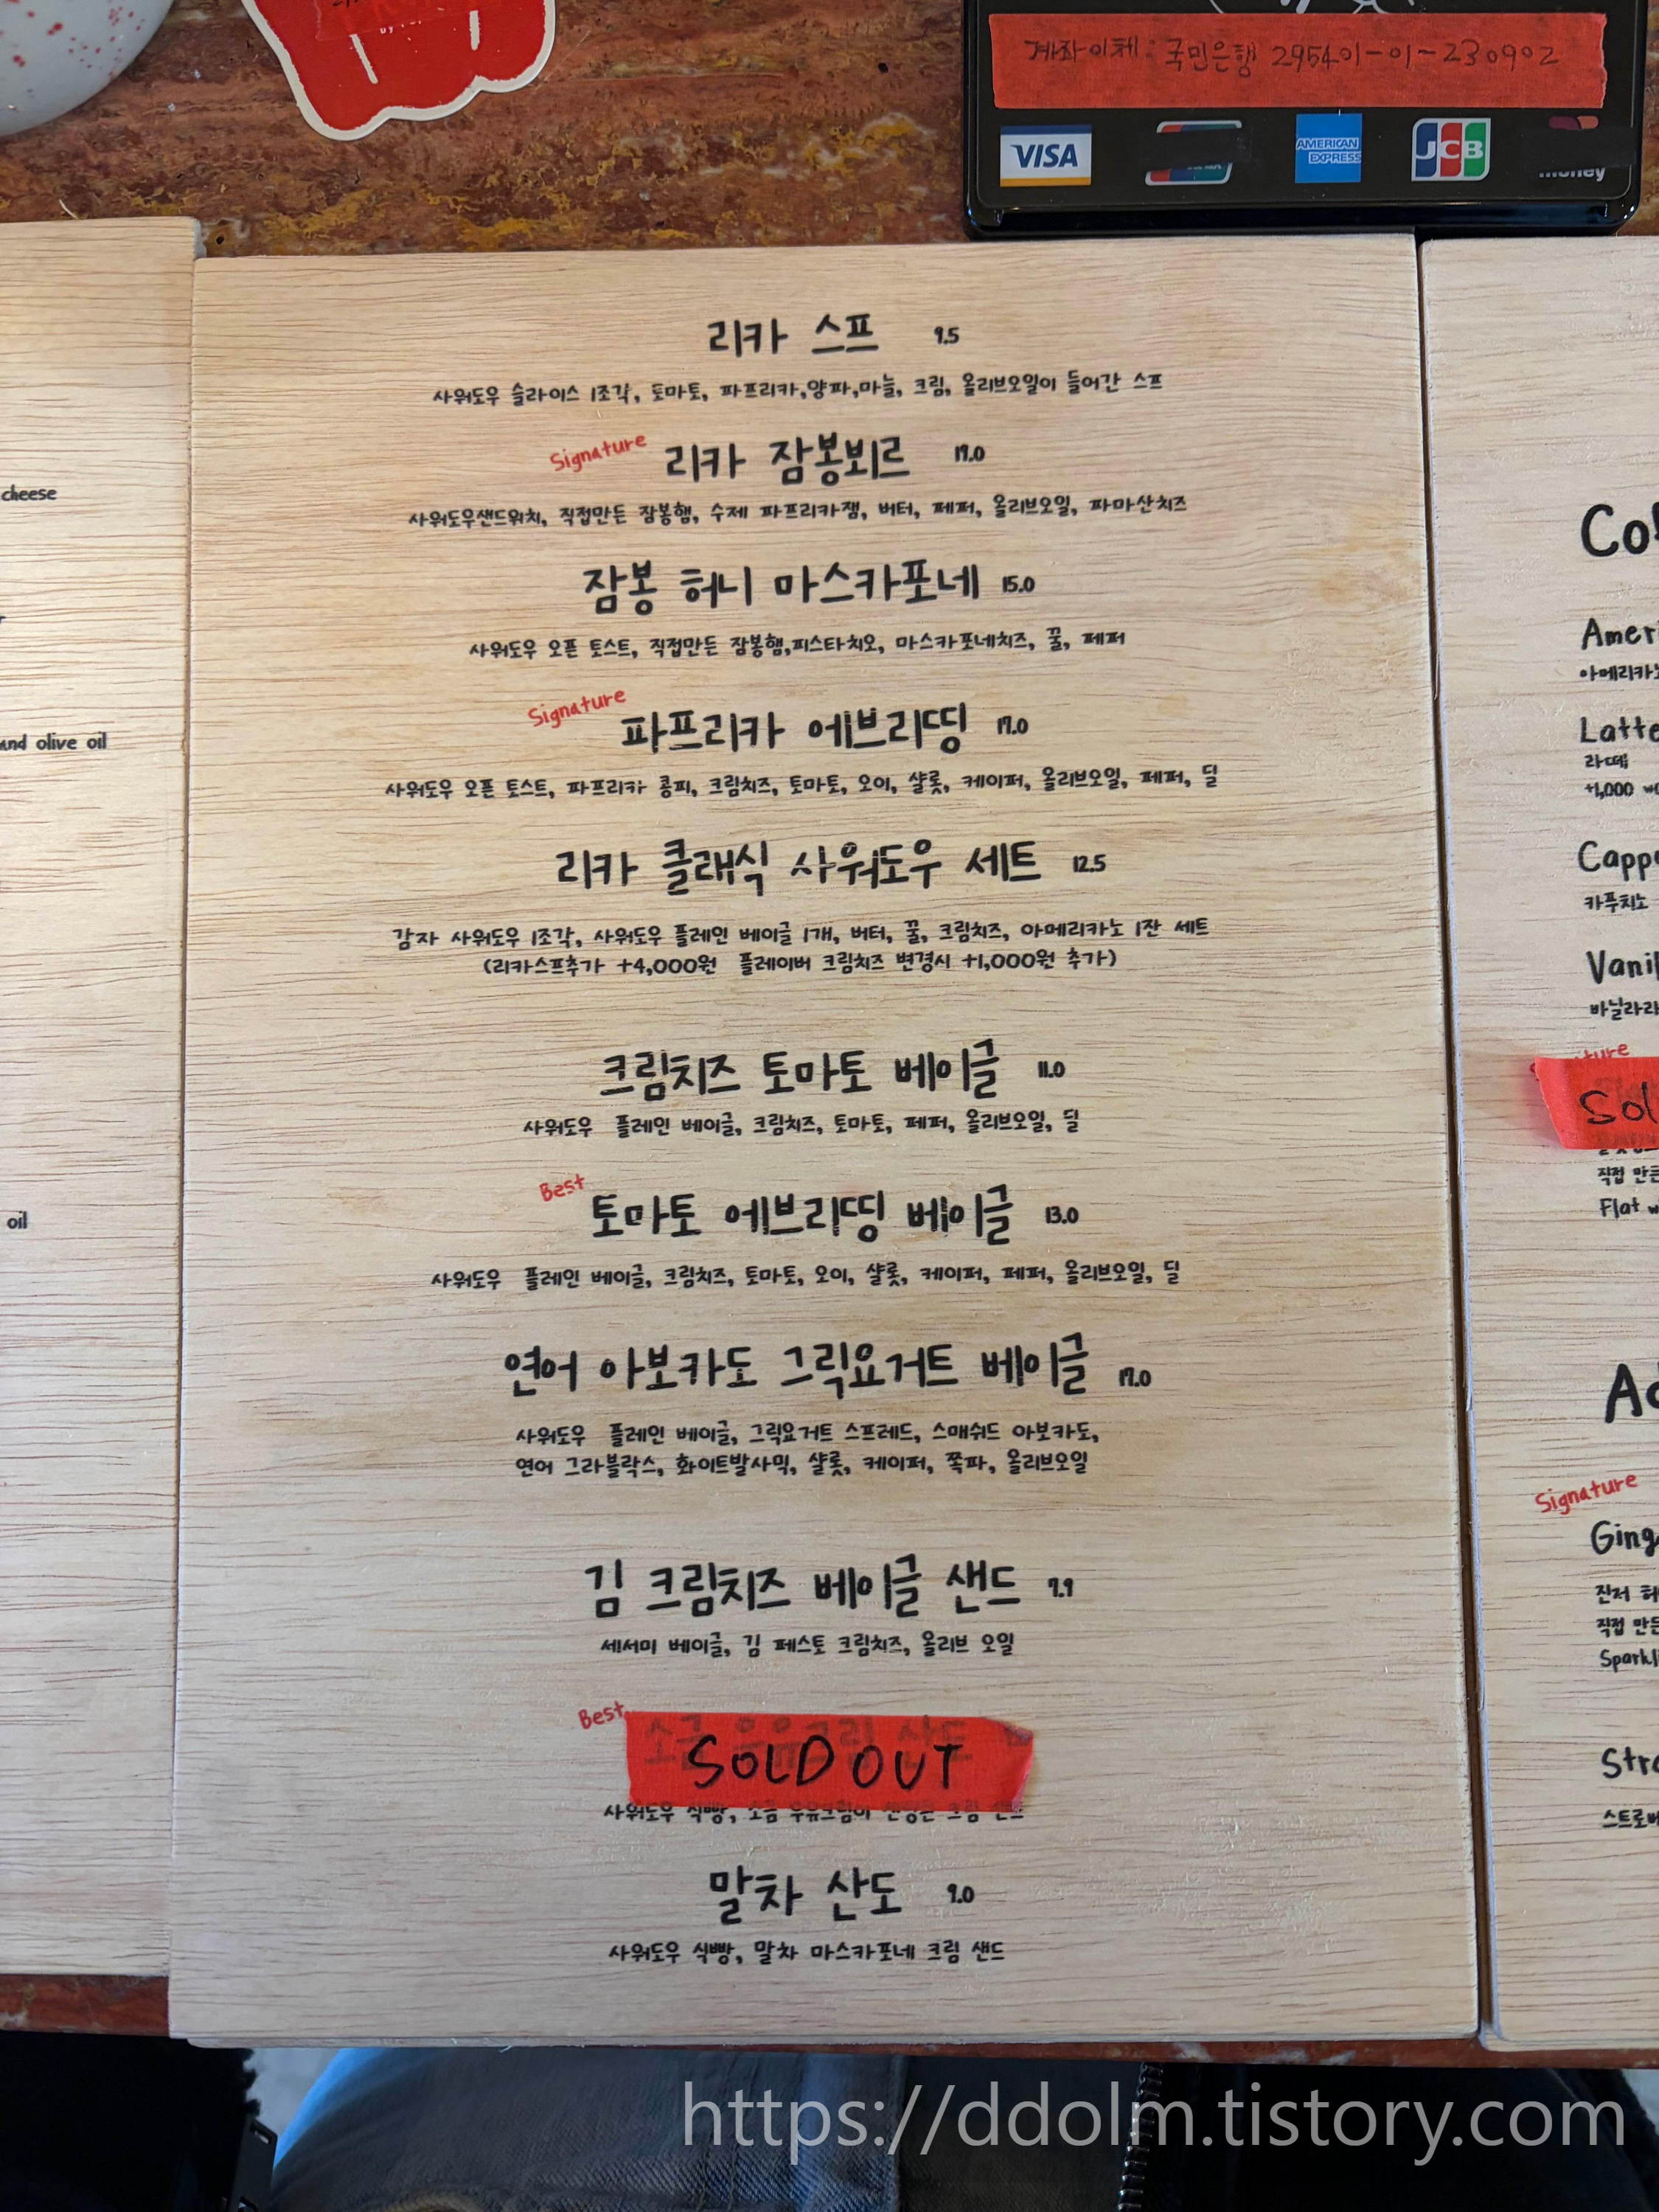 계좌이체 : 국민은행 295401-01-230902
VISA
AMERICAN EXPRESS
JCB
money
cheese
and olive oil
oil
리카 스프 9.5
사워도우 슬라이스 1조각, 토마토, 파프리카,양파,마늘, 크림, 올리브오일이 들어간 스프
Signature
리카 잠봉뵈르 17.0
사워도우샌드위치, 직접만든 잠봉햄, 수제 파프리카잼, 버터, 페퍼, 올리브오일, 파마산치즈
잠봉 허니 마스카포네 15.0
사워도우 오픈 토스트, 직접만든 잠봉햄,피스타치오, 마스카포네치즈, 꿀, 페퍼
Signature
파프리카 에브리띵 17.0
사워도우 오픈 토스트, 파프리카 콩피, 크림치즈, 토마토, 오이, 샬롯, 케이퍼, 올리브오일, 페퍼, 딜
리카 클래식 사워도우 세트 12.5
감자 사워도우 1조각, 사워도우 플레인 베이글 1개, 버터, 꿀, 크림치즈, 아메리카노 1잔 세트
(리카스프추가 +4,000원 플레이버 크림치즈 변경시 +1,000원 추가)
크림치즈 토마토 베이글 11.0
사워도우 플레인 베이글, 크림치즈, 토마토, 페퍼, 올리브오일, 딜
Best
토마토 에브리띵 베이글 13.0
사워도우 플레인 베이글, 크림치즈, 토마토, 오이, 샬롯, 케이퍼, 페퍼, 올리브오일, 딜
연어 아보카도 그릭요거트 베이글 17.0
사워도우 플레인 베이글, 그릭요거트 스프레드, 스매쉬드 아보카도,
연어 그라블락스, 화이트발사믹, 샬롯, 케이퍼, 쪽파, 올리브오일
김 크림치즈 베이글 샌드 7.9
세서미 베이글, 김 페스토 크림치즈, 올리브 오일
Best
소금 우유크림 산도
SOLD OUT
사워도우 식빵, 소금 우유크림이 크림 샌드
말차 산도 9.0
사워도우 식빵, 말차 마스카포네 크림 샌드
Ameri
아메리카
Latte
라떼
+1,000
Capp
카푸치노
Vanil
바닐라라
Sol
직접 만든
Flat w
Signature
Ging
진저 허
직접 만든
Sparkli
Stra
스트로베
https://ddolm.tistory.com